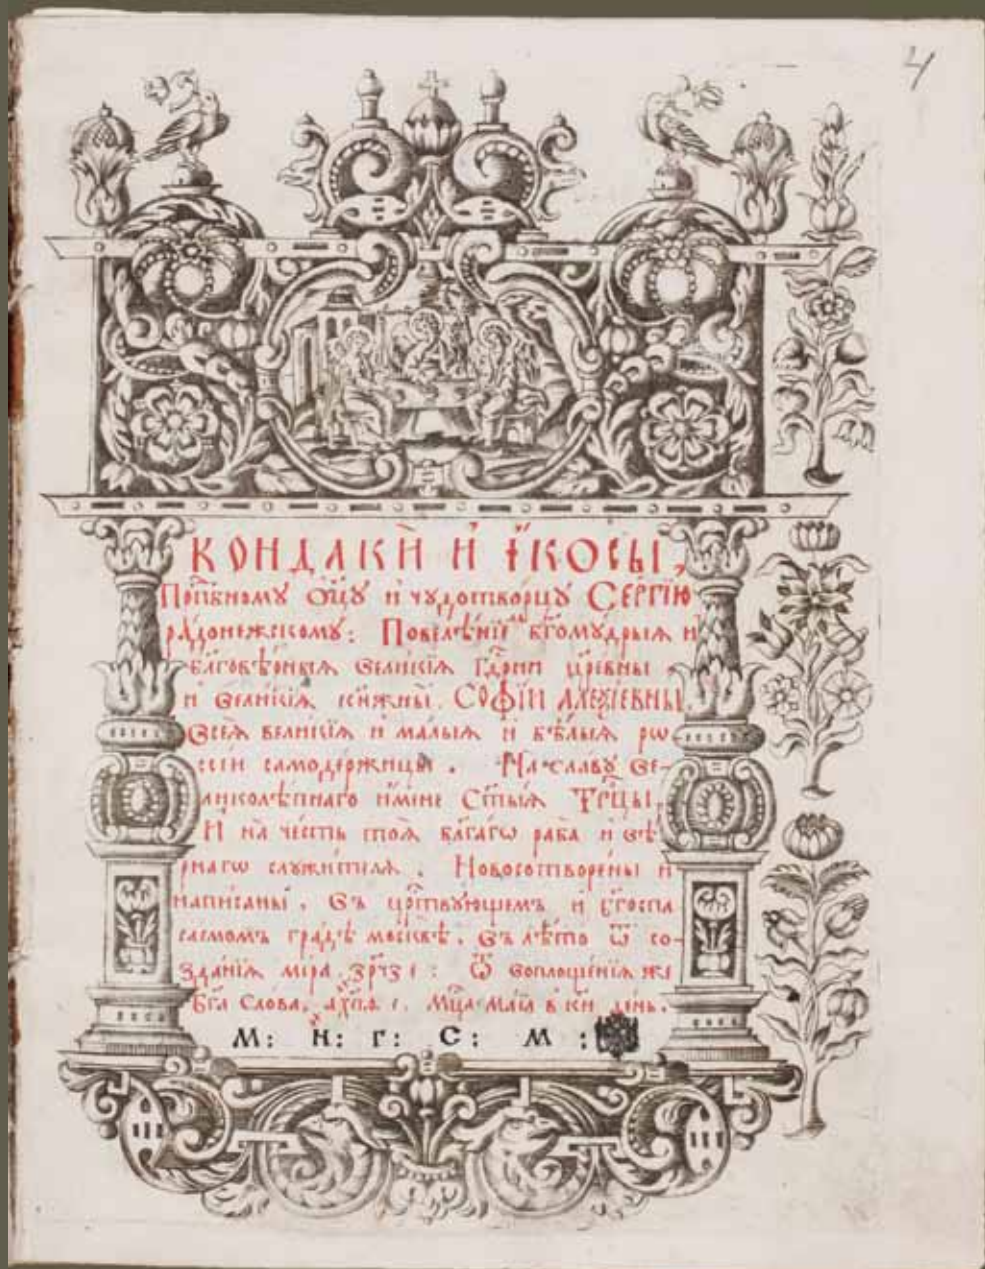 4
КОНДАКЍ И҆ І҆КОСЫ,
Прп҃бному Ѻ҆ц҃у и҆ чудотворцу Сергїю
ра́донежскому: Повелѣнїемъ бг҃ому́дрыѧ и҆
бл҃говѣ́рныѧ вели́кїѧ гд҃рни цр҃евны
и҆ вели́кїѧ кнѧжны̀. СОФІ́И АЛЕѮІЕВНЫ
Всеѧ̀ вели́кїѧ и҆ ма́лыѧ и҆ бѣ́лыѧ рѡ
ссі́и самоде́ржицы. На сла́ву ве-
ликолѣ́пнаго и҆́мене Ст҃ы́ѧ Трⷪ҇цы,
И҆ на че́сть тоѧ̀ бл҃га́гѡ раба̀ и҆ вѣ́
рнагѡ служи́телѧ. Новосотворе́ны и҆
напи́саны. Въ црⷭ҇твующемъ и҆ бг҃оспа
са́емомъ гра́дѣ москвѣ̀. Въ лѣ́то ѿ со-
зда́нїѧ мі́ра ҂зр҃ч҃г : Ѿ воплоще́нїѧ же
Бг҃а Сло́ва, ҂ахп҃е. Мц҃а Маїа в ки де́нь.
М: Н: Г: С: М: